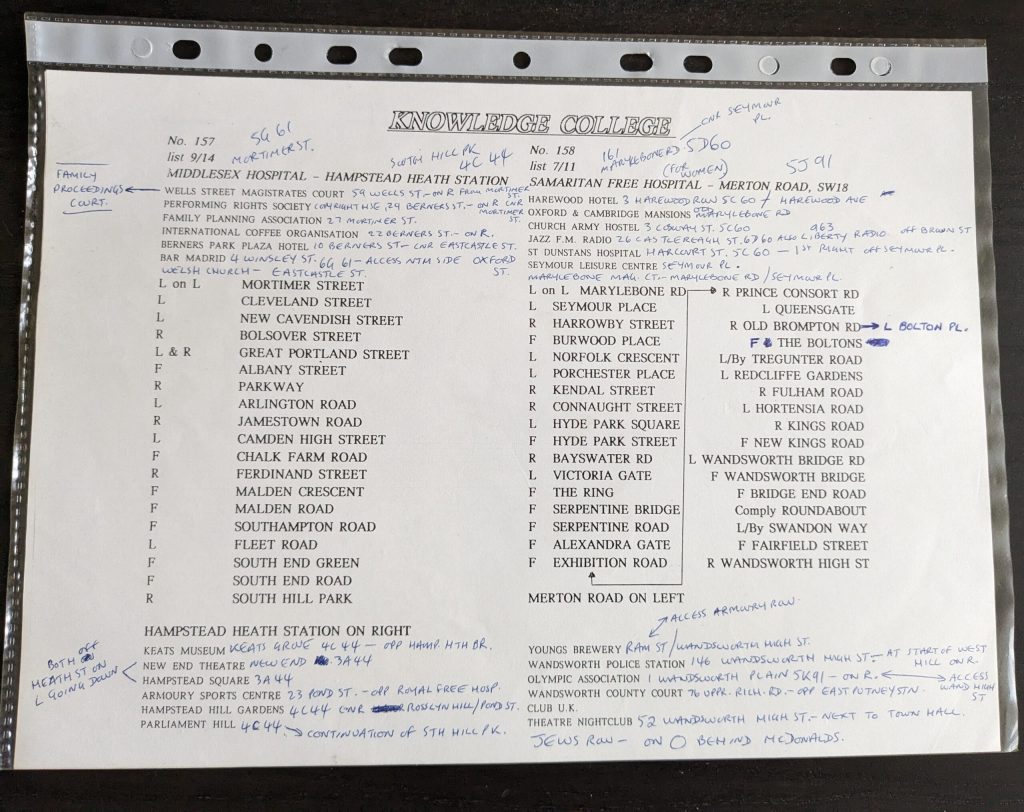 KNOWLEDGE COLLEGE
No. 157
list 9/14
5G 61
MORTIMER ST.
SOUTH HILL PK
4C 44
MIDDLESEX HOSPITAL - HAMPSTEAD HEATH STATION
FAMILY
PROCEEDINGS
COURT.
WELLS STREET MAGISTRATES COURT 59 WELLS ST.- ON R FROM MORTIMER ST.
PERFORMING RIGHTS SOCIETY COPYRIGHT HSE, 29 BERNERS ST. - ON R CNR MORTIMER ST.
FAMILY PLANNING ASSOCIATION 27 MORTIMER ST.
INTERNATIONAL COFFEE ORGANISATION 22 BERNERS ST. - ON R.
BERNERS PARK PLAZA HOTEL 10 BERNERS ST - CNR EASTCASTLE ST.
BAR MADRID 4 WINSLEY ST. 6G 61 - ACCESS NTH SIDE OXFORD ST.
WELSH CHURCH - EASTCASTLE ST.
L on L MORTIMER STREET
L CLEVELAND STREET
L NEW CAVENDISH STREET
R BOLSOVER STREET
L & R GREAT PORTLAND STREET
F ALBANY STREET
R PARKWAY
L ARLINGTON ROAD
R JAMESTOWN ROAD
L CAMDEN HIGH STREET
F CHALK FARM ROAD
R FERDINAND STREET
F MALDEN CRESCENT
F MALDEN ROAD
F SOUTHAMPTON ROAD
L FLEET ROAD
F SOUTH END GREEN
F SOUTH END ROAD
R SOUTH HILL PARK
HAMPSTEAD HEATH STATION ON RIGHT
KEATS MUSEUM KEATS GROVE 4C 44 - OPP HAMP. HTH BR.
NEW END THEATRE NEW END 3A44
HAMPSTEAD SQUARE 3A44
BOTH OFF
HEATH ST ON
L GOING DOWN
ARMOURY SPORTS CENTRE 23 POND ST. - OPP ROYAL FREE HOSP.
HAMPSTEAD HILL GARDENS 4C44 CNR ROSSLYN HILL/POND ST.
PARLIAMENT HILL 4C44 CONTINUATION OF STH HILL PK.
No. 158
list 7/11
161
MARYLEBONE RD
CNR SEYMOUR PL.
5D60
(FOR WOMEN)
5J 91
SAMARITAN FREE HOSPITAL - MERTON ROAD, SW18
HAREWOOD HOTEL 3 HAREWOOD ROW 5C 60 HAREWOOD AVE
OXFORD & CAMBRIDGE MANSIONS MARYLEBONE RD
CHURCH ARMY HOSTEL 3 COSWAY ST. 5C60
JAZZ F.M. RADIO 26 CASTLEREAGH ST. 6D60 ALSO 963 LIBERTY RADIO OFF BROWN ST
ST DUNSTANS HOSPITAL HARCOURT ST. 5C 60 - 1ST RIGHT OFF SEYMOUR PL.
SEYMOUR LEISURE CENTRE SEYMOUR PL.
MARYLEBONE MAG. CT.- MARYLEBONE RD / SEYMOUR PL.
L on L MARYLEBONE RD
L SEYMOUR PLACE
R HARROWBY STREET
F BURWOOD PLACE
L NORFOLK CRESCENT
L PORCHESTER PLACE
R KENDAL STREET
R CONNAUGHT STREET
L HYDE PARK SQUARE
F HYDE PARK STREET
R BAYSWATER RD
L VICTORIA GATE
F THE RING
F SERPENTINE BRIDGE
F SERPENTINE ROAD
F ALEXANDRA GATE
F EXHIBITION ROAD
R PRINCE CONSORT RD
L QUEENSGATE
R OLD BROMPTON RD L BOLTON PL.
F THE BOLTONS
L/By TREGUNTER ROAD
L REDCLIFFE GARDENS
R FULHAM ROAD
L HORTENSIA ROAD
R KINGS ROAD
F NEW KINGS ROAD
L WANDSWORTH BRIDGE RD
F WANDSWORTH BRIDGE
F BRIDGE END ROAD
Comply ROUNDABOUT
L/By SWANDON WAY
F FAIRFIELD STREET
R WANDSWORTH HIGH ST
MERTON ROAD ON LEFT
ACCESS ARMOURY ROW
YOUNGS BREWERY RAM ST/WANDSWORTH HIGH ST.
WANDSWORTH POLICE STATION 146 WANDSWORTH HIGH ST.- AT START OF WEST HILL ON R.
OLYMPIC ASSOCIATION 1 WANDSWORTH PLAIN 5K91 - ON R. ACCESS WAND HIGH ST
WANDSWORTH COUNTY COURT 76 UPR. RICH. RD.- OPP EAST PUTNEY STN.
CLUB U.K.
THEATRE NIGHTCLUB 52 WANDSWORTH HIGH ST.- NEXT TO TOWN HALL.
JEWS ROW - ON BEHIND McDONALDS.